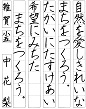 自然を愛しきれいな
まちをつくろう。
たがいにたすけあい
希望にみちた
まちをつくろう。
雑賀小 中 花梨